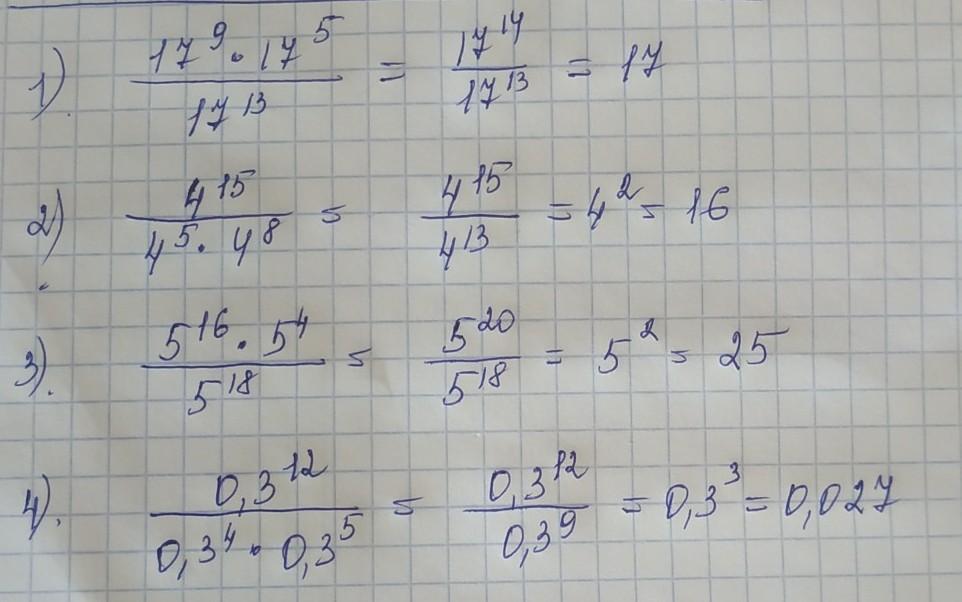 1). 17^9 · 17^5 / 17^13 = 17^14 / 17^13 = 17
2). 4^15 / 4^5 · 4^8 = 4^15 / 4^13 = 4^2 = 16
3). 5^16 · 5^4 / 5^18 = 5^20 / 5^18 = 5^2 = 25
4). 0,3^12 / 0,3^4 · 0,3^5 = 0,3^12 / 0,3^9 = 0,3^3 = 0,027